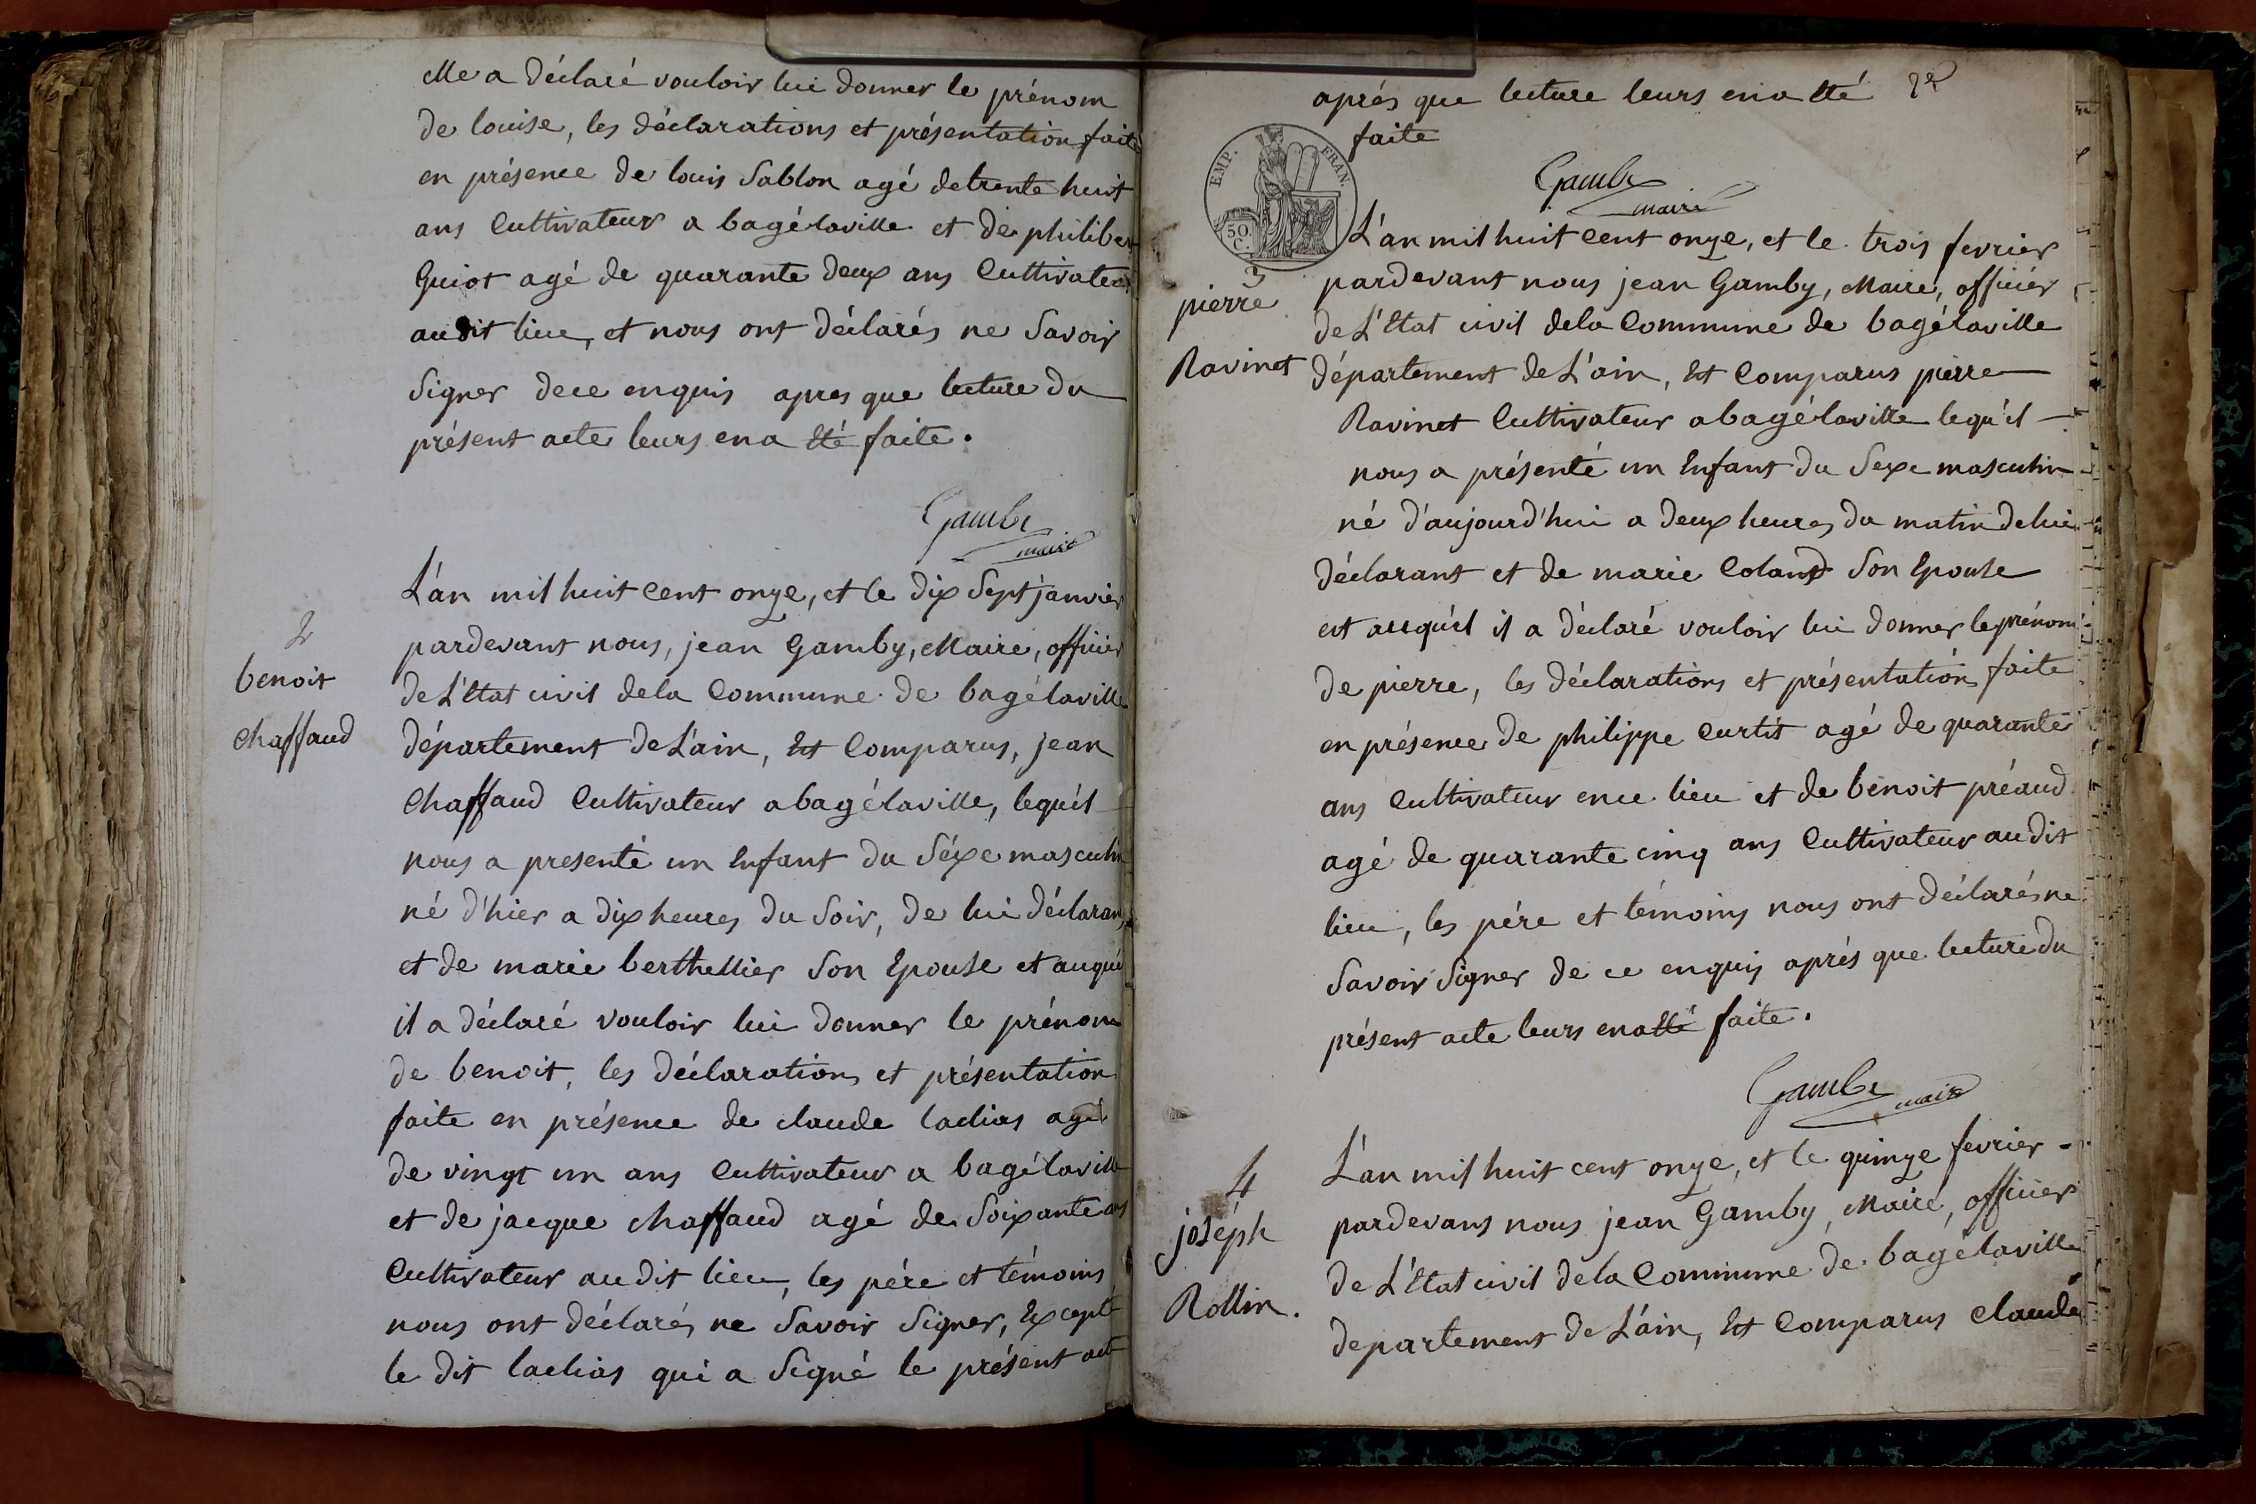 elle a déclaré vouloir lui donner le prénom
de louise, les déclarations et présentation faite
en présence de louis Sablon agé detrente huit
ans Cultivateur a bagélaville et de philiber
Guiot agé de quarante deux ans Cultivateur
audit lieu, et nous ont déclarés ne Savoir
Signer dece enquis apres que lecture du
présent acte leurs ena été faite.
Gambi
maire
L'an mil huit cent onze, et le dix Sept janvier
2
benoit
chaffaud
pardevant nous, jean Gamby, Maire, officier
de L'Etat civil dela Commune de bagélaville
département de L'ain, Est Comparus, jean
Chaffaud Cultivateur a bagélaville, lequ'el
nous a presenté un Enfant du Séxe masculin
né d'hier a dix heures du Soir, de lui déclarant
et de marie berthellier Son Epouse et auquel
il a déclaré vouloir lui donner le prénom
de benoit, les déclarations et présentation
faite en présence de claude laclias agé
de vingt un ans Cultivateur a bagélaville
et de jacque chaffaud agé de Soixante ans
Cultivateur au dit lieu, les pére et témoins
nous ont déclarés ne Savoir Signer, Excepté
le dit laclias qui a Signé le présent act
aprés que lecture leurs en a été
faite
EMP. FRAN.
50.
C.
Gambi
maire
3
pierre
Ravinet
L'an mil huit cent onze, et le trois fevrier
pardevant nous jean Gamby, Maire, officiér
de L'Etat civil dela Commune de bagélaville
département de L'ain, Est Comparus pierre
Ravinet Cultivateur abagélaville lequ'el
nous a présenté un Enfant du Sexe masculin
né d'aujourd'hui a deux heures du matin delui
déclarant et de marie Coland Son Epouse
est auqu'el il a déclaré vouloir lui donner le prénom
de pierre, les déclarations et présentation faite
en présence de philippe Curtit agé de quarante
ans Cultivateur ence lieu et de benoit préaud
agé de quarante cinq ans Cultivateur audit
lieu, les pére et témoins nous ont déclarés ne
Savoir Signer de ce enquis aprés que lecture du
présent acte leurs ena été faite.
Gambi
maire
4
joséph
Rollin.
L'an mil huit cent onze, et le quinze fevrier
pardevant nous jean Gamby, Maire, officier
de L'Etat civil dela Commune de bagélaville
departement de L'ain, Est Comparus claude